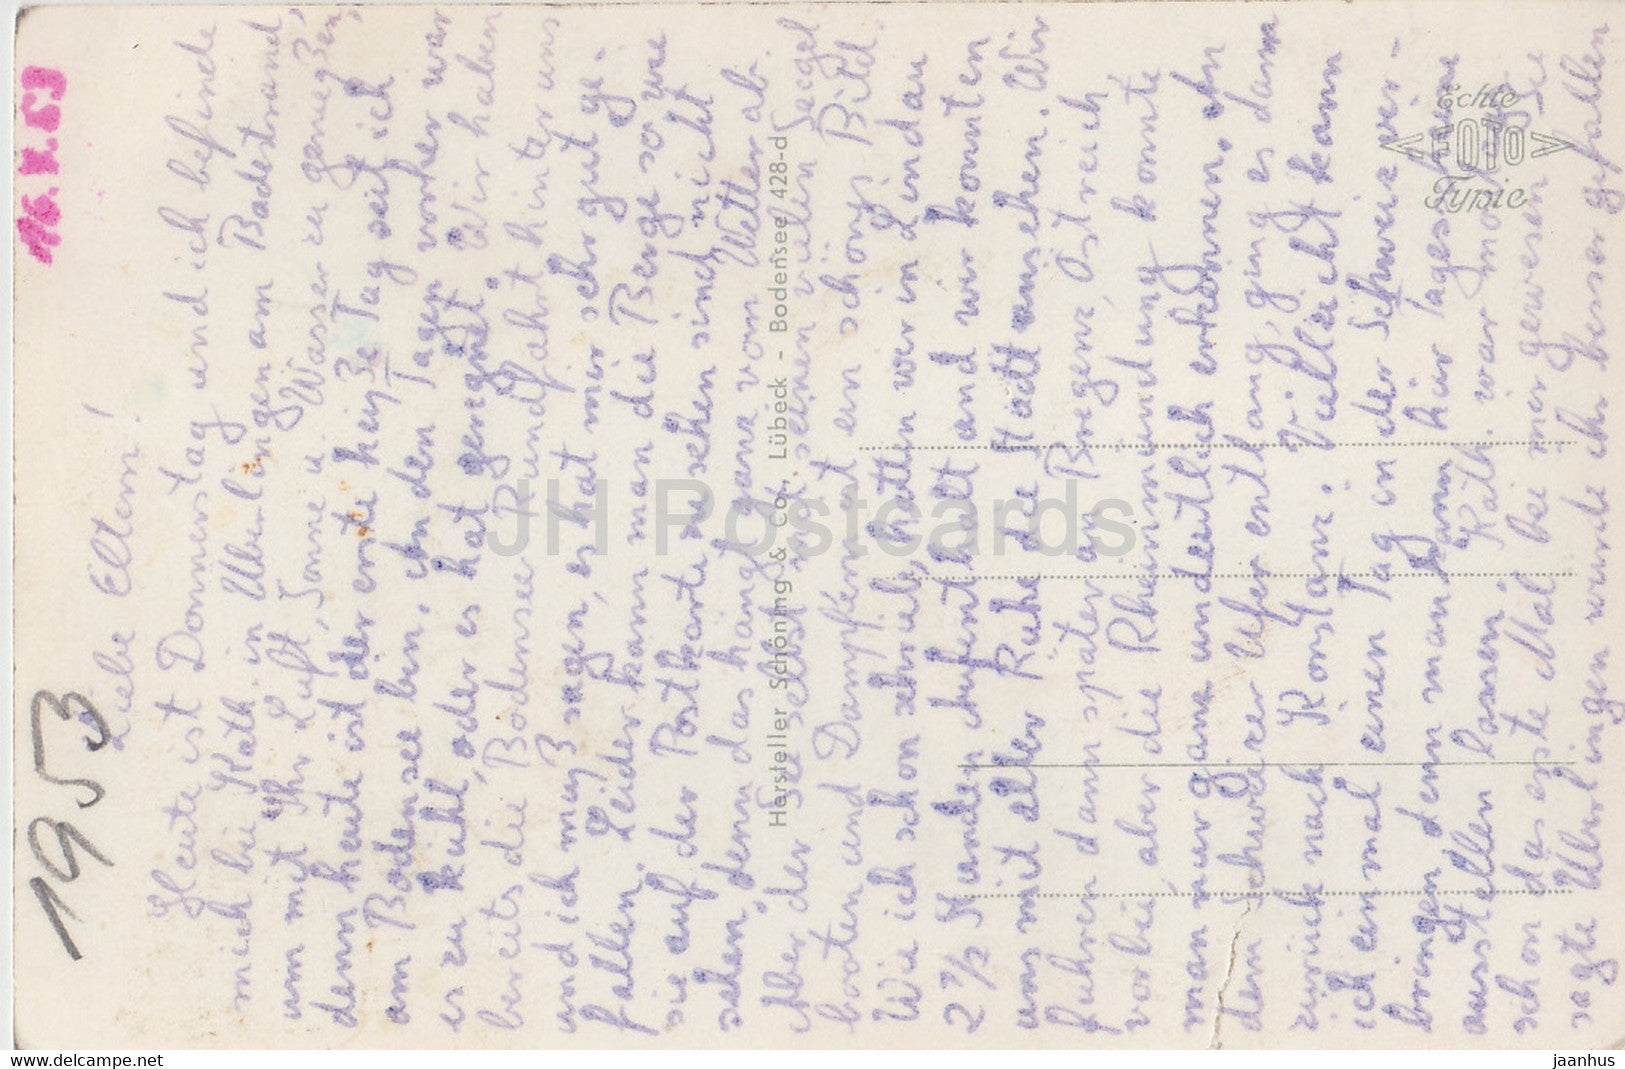 1953
Liebe Eltern!
Heute ist Donnerstag und ich befinde
mich bei Käth. in Überlingen am Badestrand,
um mit Ihr Luft, Sonne u. Wasser zu genießen,
denn heute ist der erste heiße Tag seit ich
am Bodensee bin. In den Tagen vorher war
es zu kühl, oder es hat geregnet. Wir haben
bereits die Bodensee Rundfahrt hinter uns
und ich muß sagen, es hat mir sehr gut ge-
fallen. Leider kann man die Berge so wie
sie auf der Postkarte zu sehen sind nicht
sehen, denn das hängt ganz vom Wetter ab.
Aber der See selbst mit seinen vielen Segel-
booten und Dampfern ist ein schönes Bild.
Wie ich schon schrieb, hatten wir in Lindau
2 1/2 Stunden Aufenthalt und wir konnten
uns mit aller Ruhe die Stadt ansehen. Wir
fuhren dann später an Bregenz, Östreich
vorbei, aber die Rheinmündung konnte
man nur ganz undeutlich erkennen. An
dem Schweizer Ufer entlang, ging es dann
zurück nach Konstanz. Vielleicht kann
ich einmal einen Tag in der Schweiz ver-
bringen denn man kann hier Tagesscheine
ausstellen lassen. Käth. war
schon das erste Mal bei mir gewesen. Sie
sagte Überlingen würde ihr besser gefallen
Hersteller Schöning & Co., Lübeck - Bodensee 428-d
Echte
FOTO
Typie
JH Postcards
delcampe.net
jaanhus